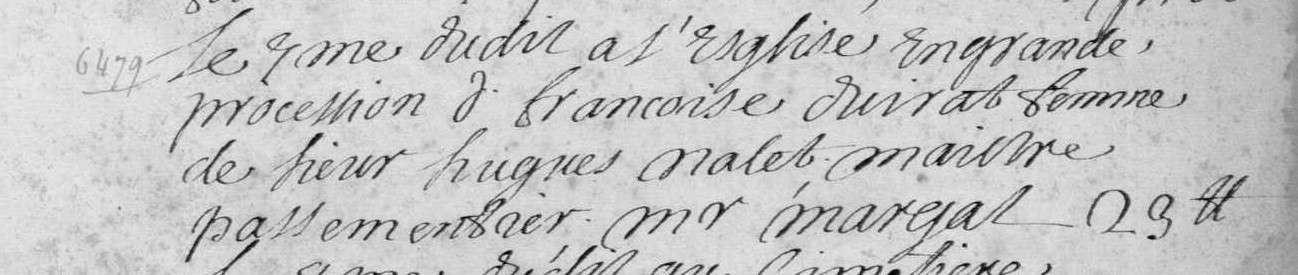 6479 Le 9me dudit a l'Esglise En grande
procession d. francoise duirat femme
de sieur hugues nalet maistre
passementier. mr margat 23 ₶
dudit au Cimetiere